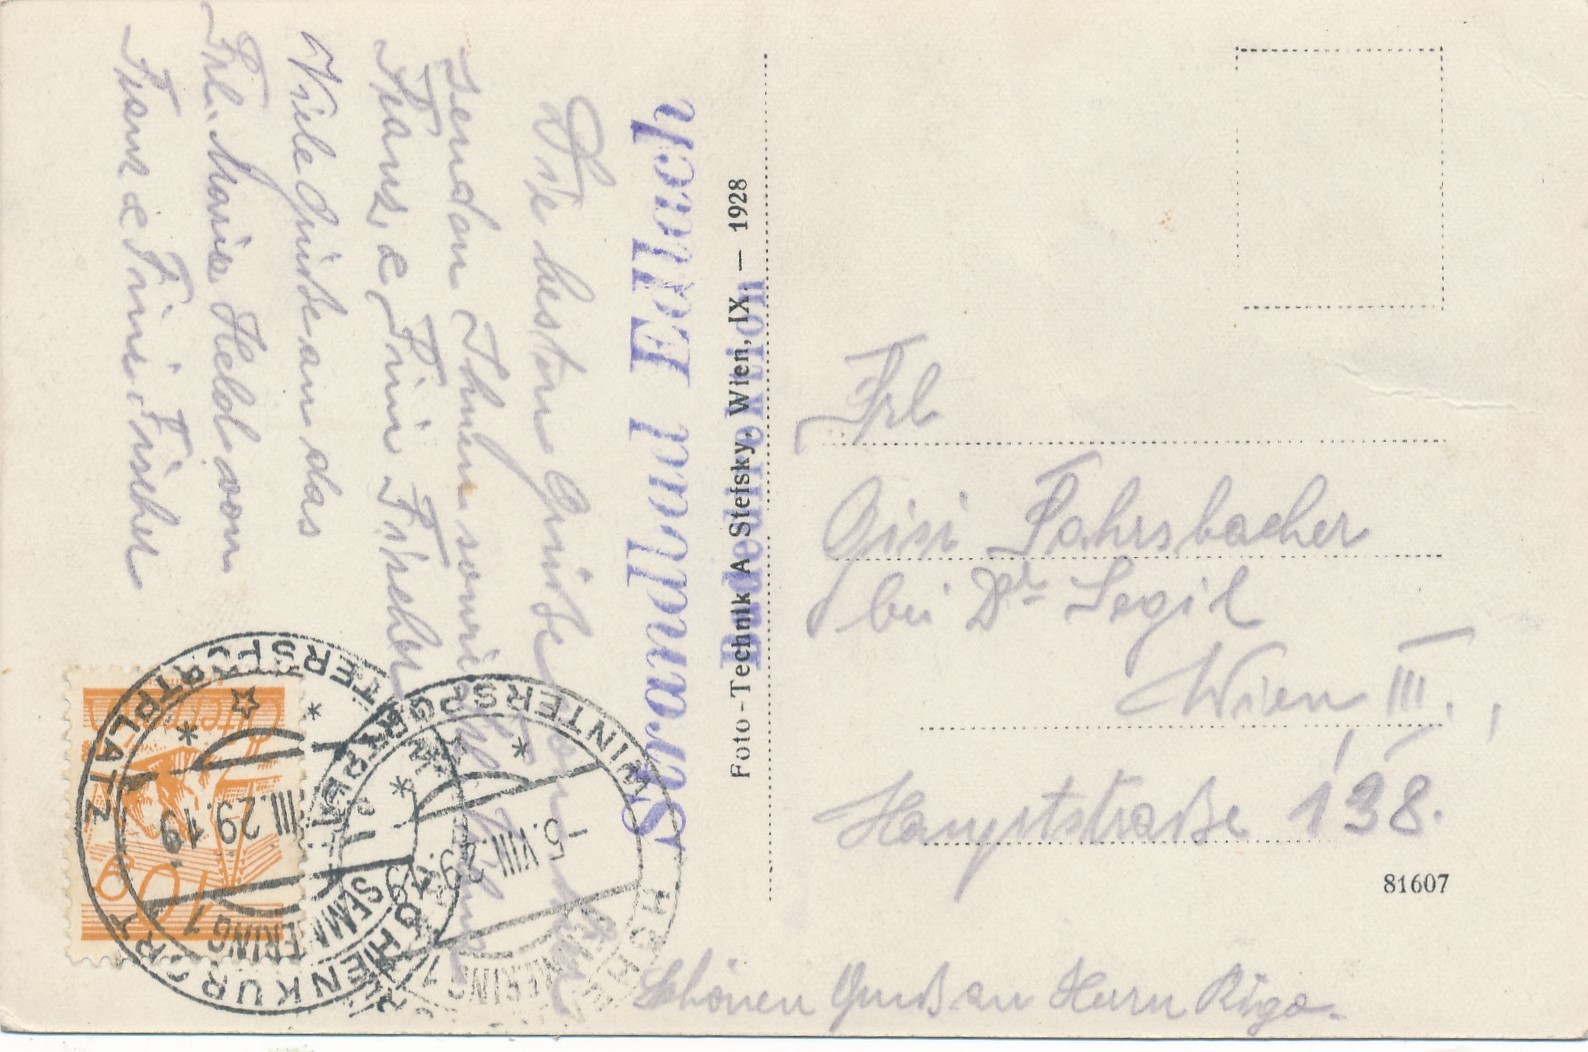 Die besten Grüße
senden Ihnen sowie
Franz & Fini Fischer
Viele Grüße an das
Frl. Marie Held vom
Franz & Fini Fischer
Strandbad Edlach
Badedirektion
Foto-Technik A Stefsky, Wien, IX. — 1928
Frl
Gisi Fahrsbacher
bei Dr Segil
Wien III.,
Hauptstraße 138.
81607
Schönen Gruß an Herrn Rigo.
HÖHENKURORT WINTERSPORTPLATZ
SEMMERING 1
VIII.29 19
HÖHENKURORT WINTERSPORTPLATZ
SEMMERING 1
-6.VIII.29
10 g